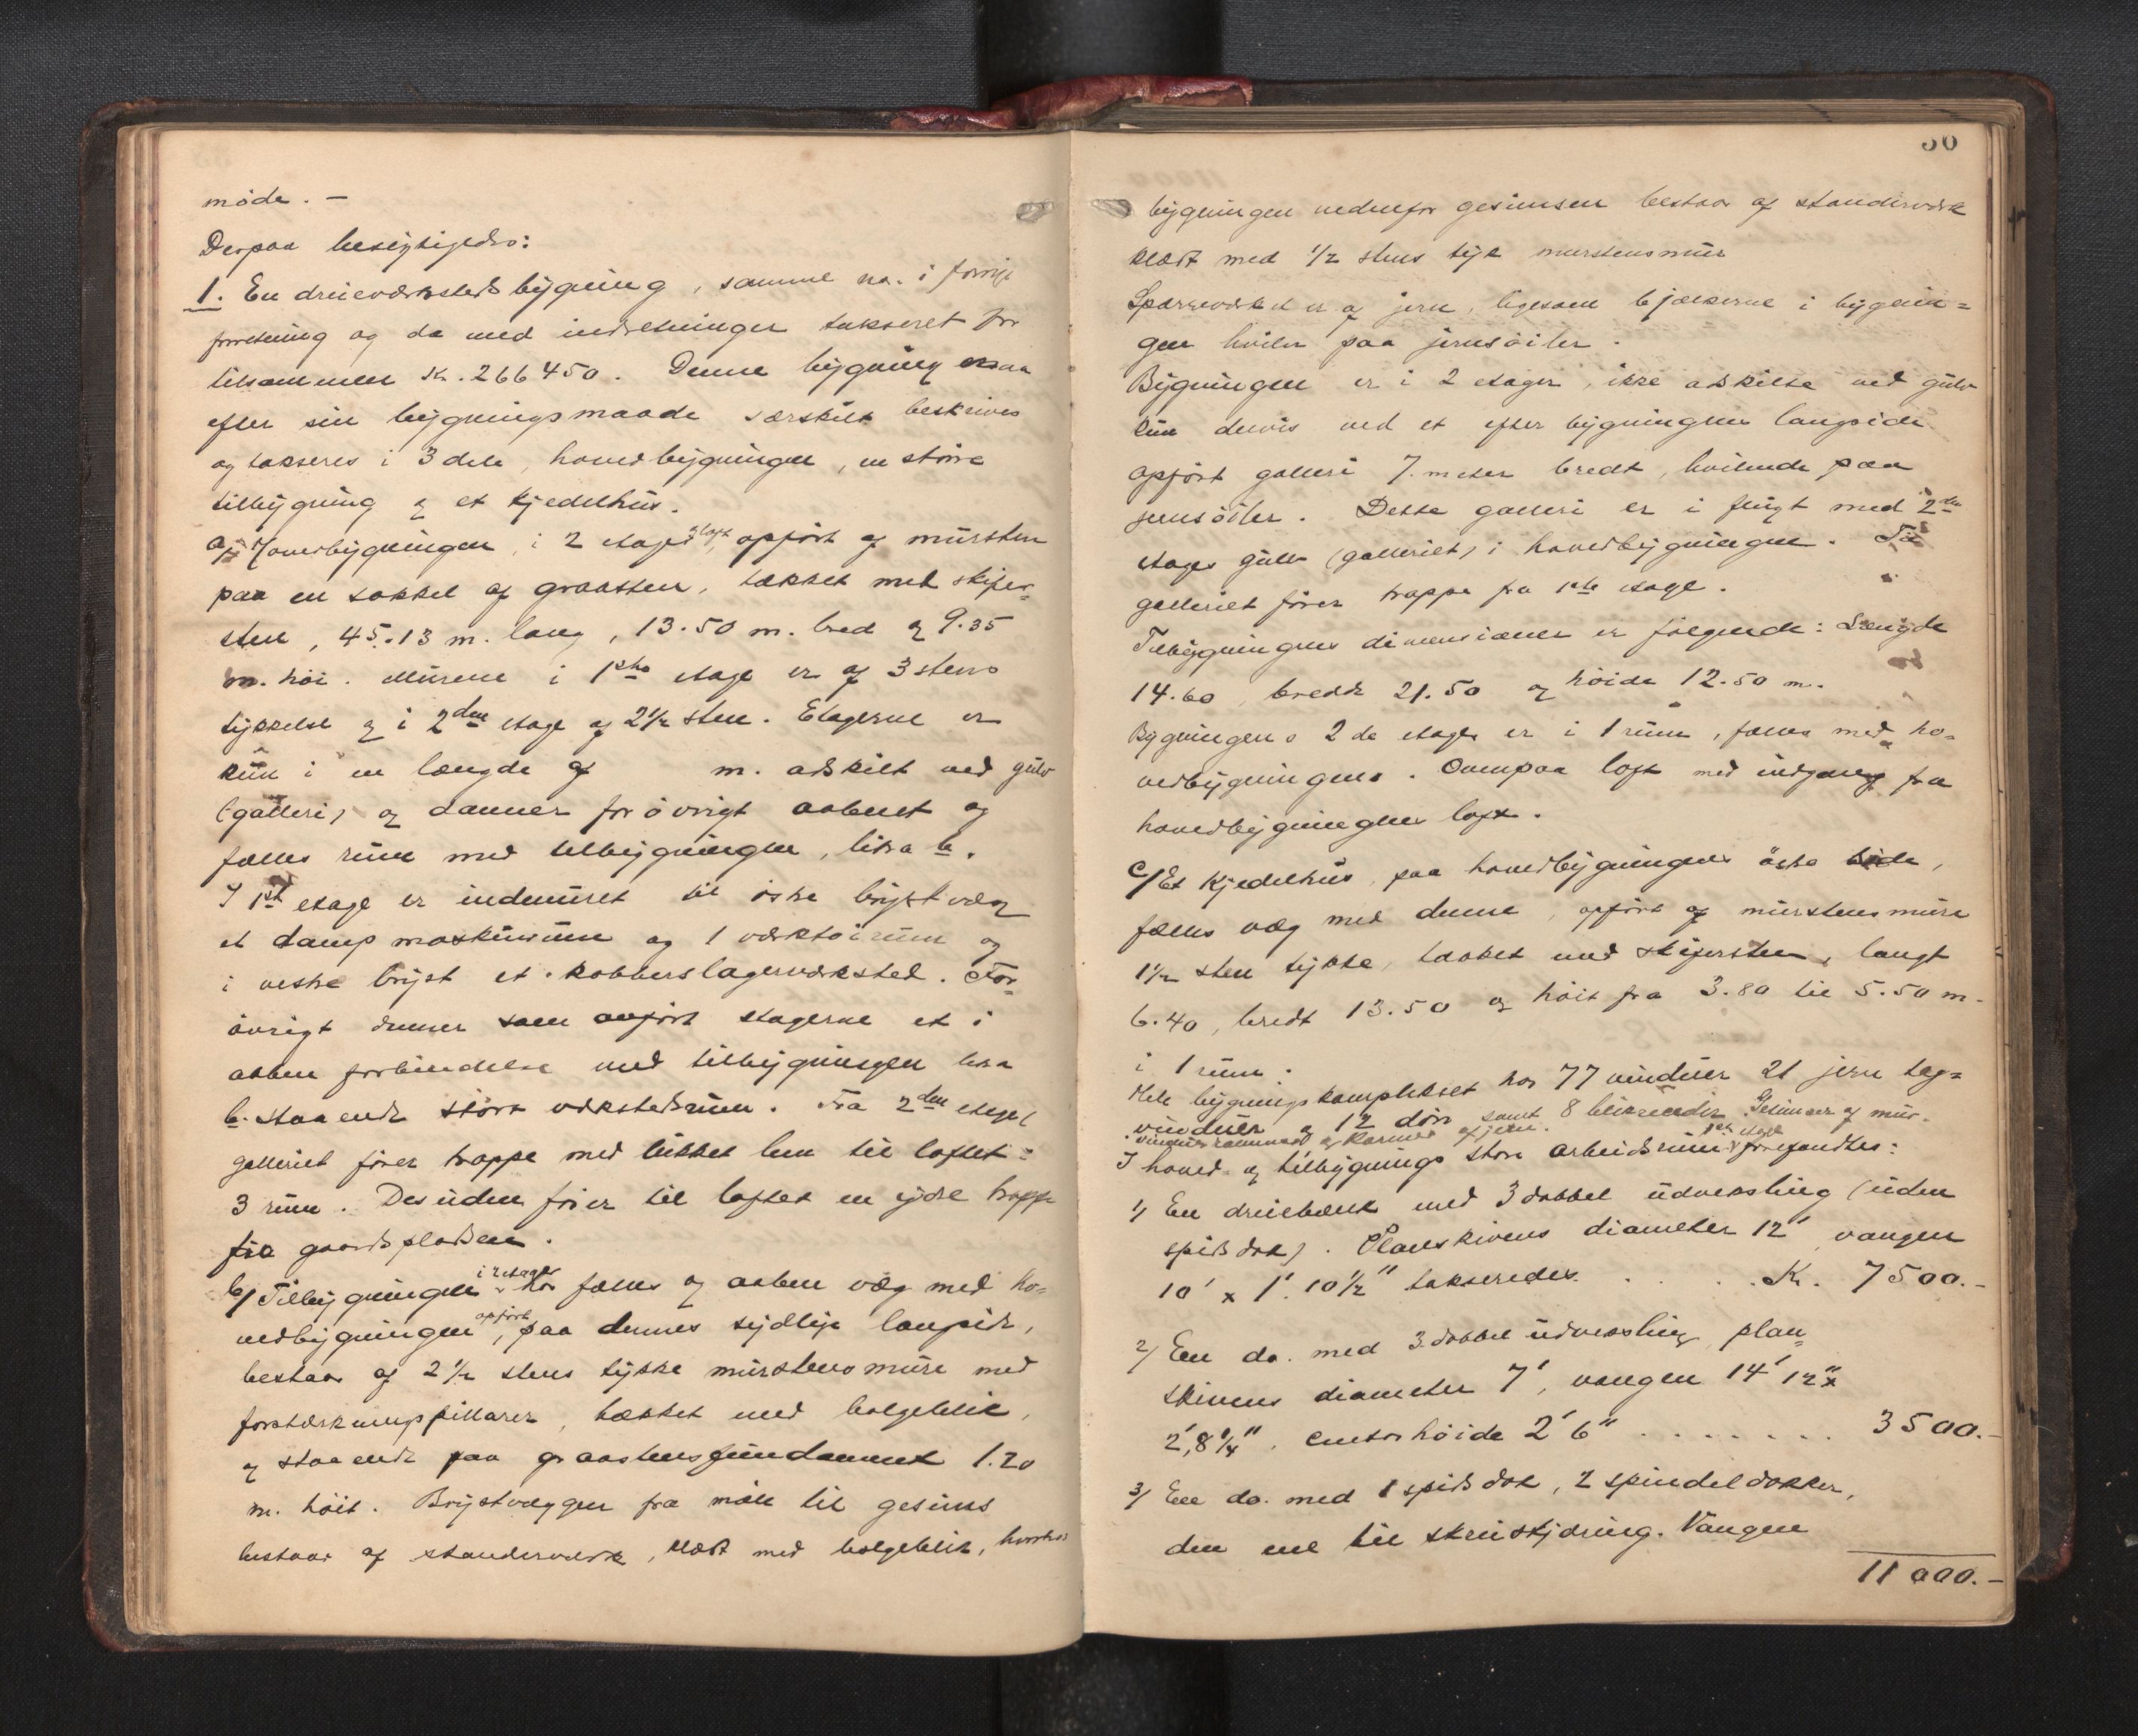 møde. —
Derpaa besigtigedes:
1. En dreieværkstedsbygning, samme no. i forrige
forretning og da med indretninger takseret for
tilsammen Kr. 266450. Denne bygning maa
efter sin bygningsmaade særskilt beskrives
og takseres i 3 dele, hovedbygningen, en større
tilbygning og et kjedelhus.
a/ Hovedbygningen, i 2 etager & loft, opført af mursten
paa en sokkel af graasten, tækket med skifer-
sten, 45.13 m. lang, 13.50 m. bred og 9.35
m. høi. Murene i 1ste etage er af 3 stens
tykkelse og i 2den etage af 2½ sten. Etagerne er
kun i en længde af m. adskilt ved gulv
(galleri) og danner forøvrigt aabent og
fælles rum med tilbygningen, litra b.
I 1st etage er indmuret til østre brystvæg
et dampmaskinrum og 1 værktøirum og
i vestre bryst et kobberslagerværksted. For-
øvrigt danner som anført etagerne et i
aaben forbindelse med tilbygningen litra
b. staaende stort værkstedsrum. Fra 2den etages
galleriet fører trappe med lukket lem til loftet:
3 rum. Desuden fører til loftet en ydre trappe
fra gaardspladsen.
b/ Tilbygningen i 2 etager har fælles og aaben væg med ho-
vedbygningen, opført paa dennes sydlige langside,
bestaar af 2½ stens tykke murstens mure med
forstærkningspillarer, tækket med bølgeblik,
og staaende paa graastensfundament 1.20
m. høit. Brystvæggen fra møne til gesims
bestaar af standerværk, klædt med bølgeblik, hvorhos
30
bygningen nedenfor gesimsen bestaar af standerværk
klædt med ½ stens tyk murstensmur
Spærreværket er af jern, ligesom bjælkerne i bygnin-
gen hviler paa jernsøiler.
Bygningen er i 2 etager, ikke adskilte ved gulv
kun delvis ved et efter bygningens langside
opført galleri 7. meter bredt, hvilende paa
jernsøiler. Dette galleri er i flugt med 2den
etages gulv (galleriet) i hovedbygningen. Til
galleriet fører trappe fra 1ste etage.
Tilbygningens dimensioner er følgende: Længde
14.60, bredde 21.50 og høide 12.50 m.
Bygningens 2de etager er i 1 rum, fælles med ho-
vedbygningens. Ovenpaa loft med indgang fra
hovedbygningens loft.
c/ Et Kjedelhus, paa hovedbygningens østre side,
fælles væg med denne, opført af murstensmure
1½ sten tykke, tækket med skifersten, langt
6.40, bredt 13.50 og høit fra 3.80 til 5.50 m.
i 1 rum.
Hele bygningskomplekset har 77 vinduer 21 jern tag-
vinduer og 12 døre samt 8 blikrender. Gesimser af mur.
Vinduesrammer og Karmer af jern.
I hoved- og tilbygnings store arbeidsrum i 1ste etage forefandtes:
1/ En dreiebænk med 3dobbel udveksling (uden
spidsdok). Planskivens diameter 12', vangen
10' x 1'. 10½" takseredes . . . . Kr. 7500.-
2/ En do. med 3dobbel udveksling, plan-
skivens diameter 7', vangen 14' 12" x
2', 8¼", centerhøide 2' 6" . . . . . . . 3500.-
3/ En do. med 1 spidsdok, 2 spindeldokker,
den ene til skruskjæring. Vangen
11000.-